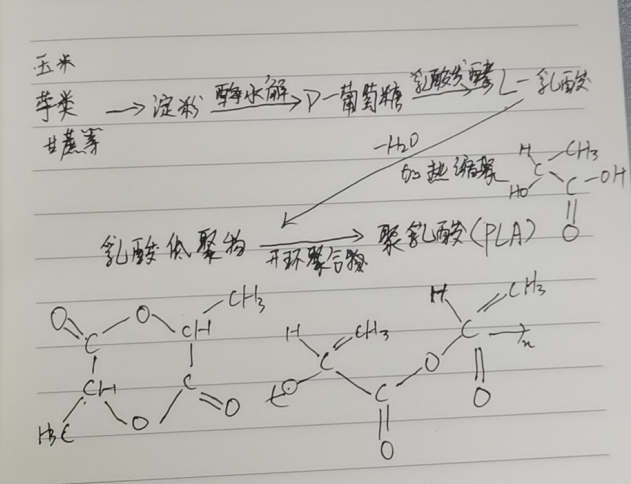 玉米
芋类 → 淀粉 酶水解 D-葡萄糖 乳酸发酵 L-乳酸
甘蔗等
-H2O
加热缩聚
H CH3
HO C C-OH
O
乳酸低聚物 开环聚合物 聚乳酸(PLA)
CH3
O O CH
C
CH C O
H3C O
H CH3 H CH3
C O C n
O C
O O